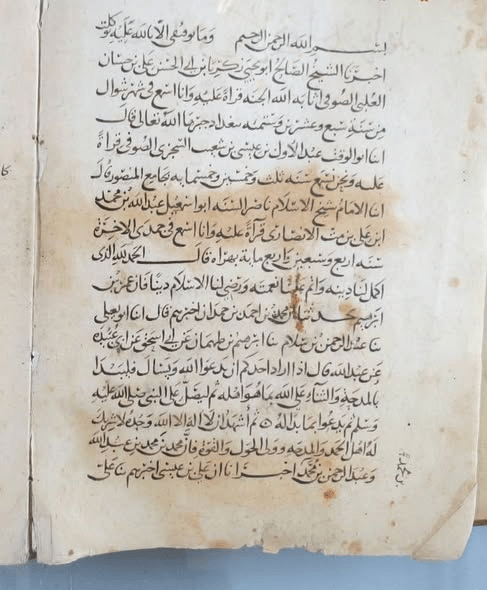 بسم الله الرحمن الرحيم وما توفيقي الا بالله عليه توكلت
اخبرنا الشيخ الصالح ابو يحيى زكريا بن ابي الحسن علي بن حسان
العلبي الصوفي اثابه الله الجنة قراة عليه وانا اسمع في شهر شوال
من سنة سبع وعشرين وستمية ببغداد حرسها الله تعالى قال
انا ابو الوقت عبد الاول بن عيسى بن شعيب السجزي الصوفي قراة
عليه ونحن نسمع سنة ثلث وخمسين وخمسماية بجامع المنصور قال
انا الامام شيخ الاسلام ناصر السنة ابو اسمعيل عبد الله بن محمد
ابن علي بن مت الانصاري قرأة عليه وانا اسمع في جمدى الاخرة
سنة اربع وسبعين واربع ماية بهراة قال الحمد لله الذي
اكمل لنا دينه واتم علينا نعمته ورضي لنا الاسلام دينا فان عمر بن
ابرهيم حدثنا بن محمد بن احمد بن حمدان اخبرهم قال انا ابو يعلى
نا عبد الرحمن بن سلام نا ابرهيم بن طهمان عن ابي اسحق عن ابي عبيدة
عن عبد الله قال اذا اراد احدكم ان يدعوا الله ويسال فليبدا
بالمدحة والثناء على الله بما هو اهله ثم ليصل على النبي صلى الله عليه
وسلم ثم يدعوا بما بدا له ثم أشهد ان لا اله الا الله وحده لا شريك
له اهل الحمد والمدحه وولي الحول والقوة فان محمد بن محمد بن عبد الله
وعبد الرحمن بن محمد اخبرانا ان علي بن عيسى اخبرهم نا علي